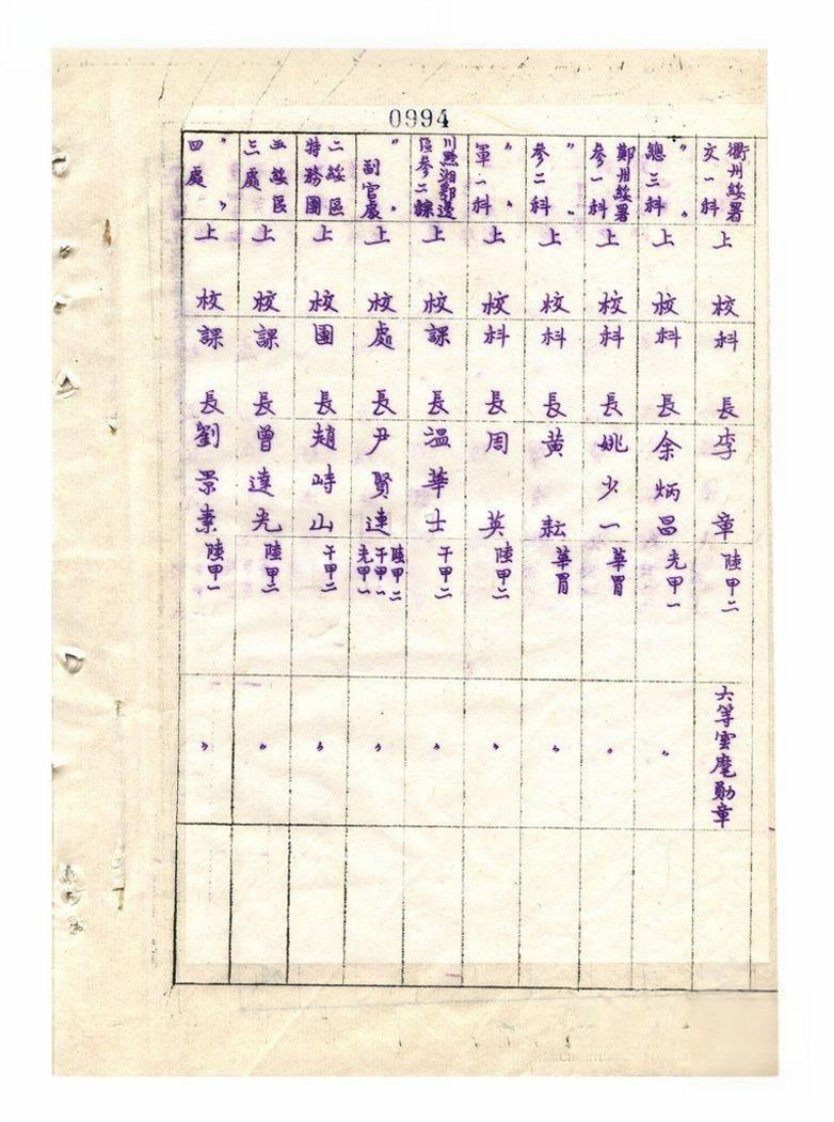 0994
衢州綏署
文一科
上校
科長
李章
陸甲二
六等雲麾勳章
〃
總三科
上校
科長
余炳昌
光甲一
〃
鄭州綏署
參一科
上校
科長
姚少一
華冑
〃
〃 〃
參二科
上校
科長
黃耘
華冑
〃
〃 〃
軍一科
上校
科長
周英
陸甲二
〃
川黔湘鄂邊
區參二課
上校
課長
溫華士
干甲二
〃
〃 〃
副官處
上校
處長
尹賢連
陸甲二
干甲一
光甲一
〃
二綏區
特務團
上校
團長
趙峙山
干甲二
〃
五綏區
三處
上校
課長
曾達光
陸甲二
〃
〃 〃
四處
上校
課長
劉景素
陸甲一
〃